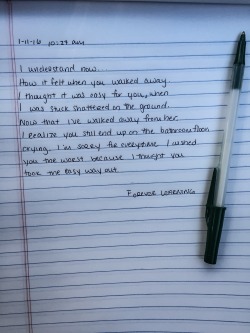 1-11-16 10:29 am
I understand now.
How it felt when you walked away.
I thought it was easy for you, when
I was stuck shattered on the ground.
Now that I've walked away from her
I realize you still end up on the bathroom floor
crying. I'm sorry for everytime I wished
you the worst because I thought you
took the easy way out.
FOREVER LEARNING